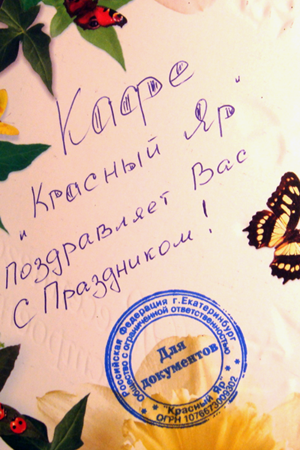 Кафе
"Красный Яр"
поздравляет Вас
с Праздником!
Российская Федерация г.Екатеринбург
Общество с ограниченной ответственностью
Для
документов
"Красный Яр"
ОГРН 1076673009302